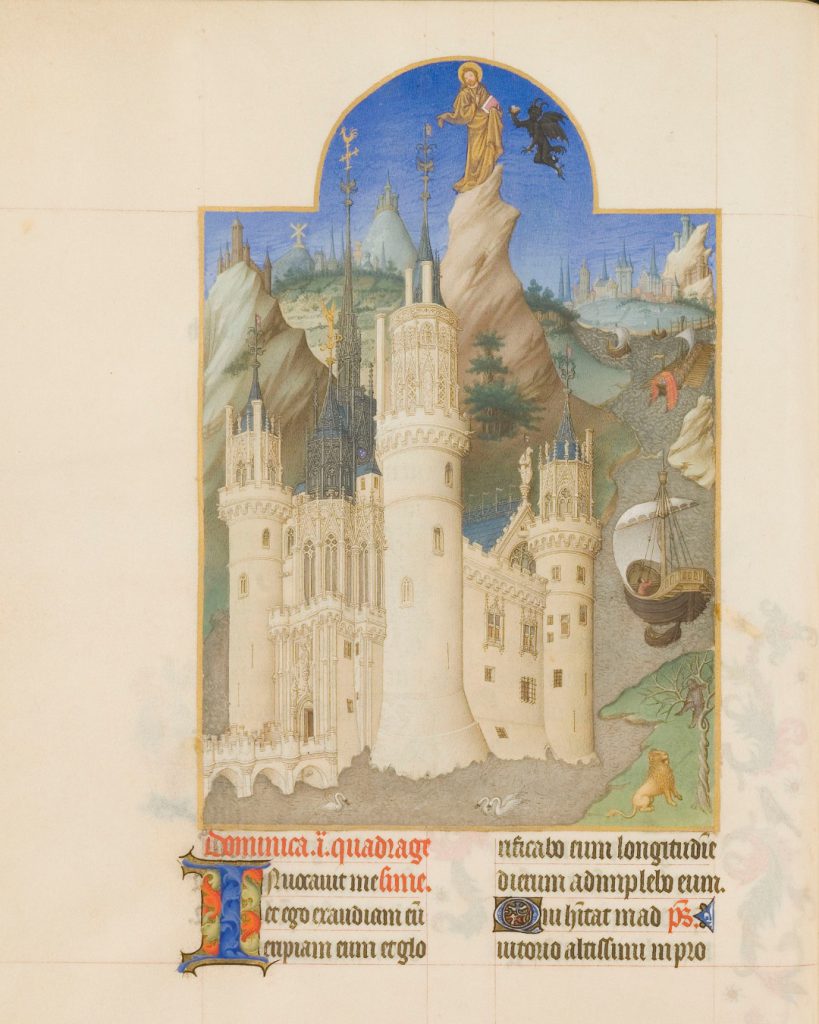 Dominica .i. quadrage
INuocauit me sime.
et ego exaudiam eū
eripiam eum et glo
rificabo eum longitudīe
dierum adimplebo eum.
Qui hītat in ad p̄s.
iutorio altissimi in pro